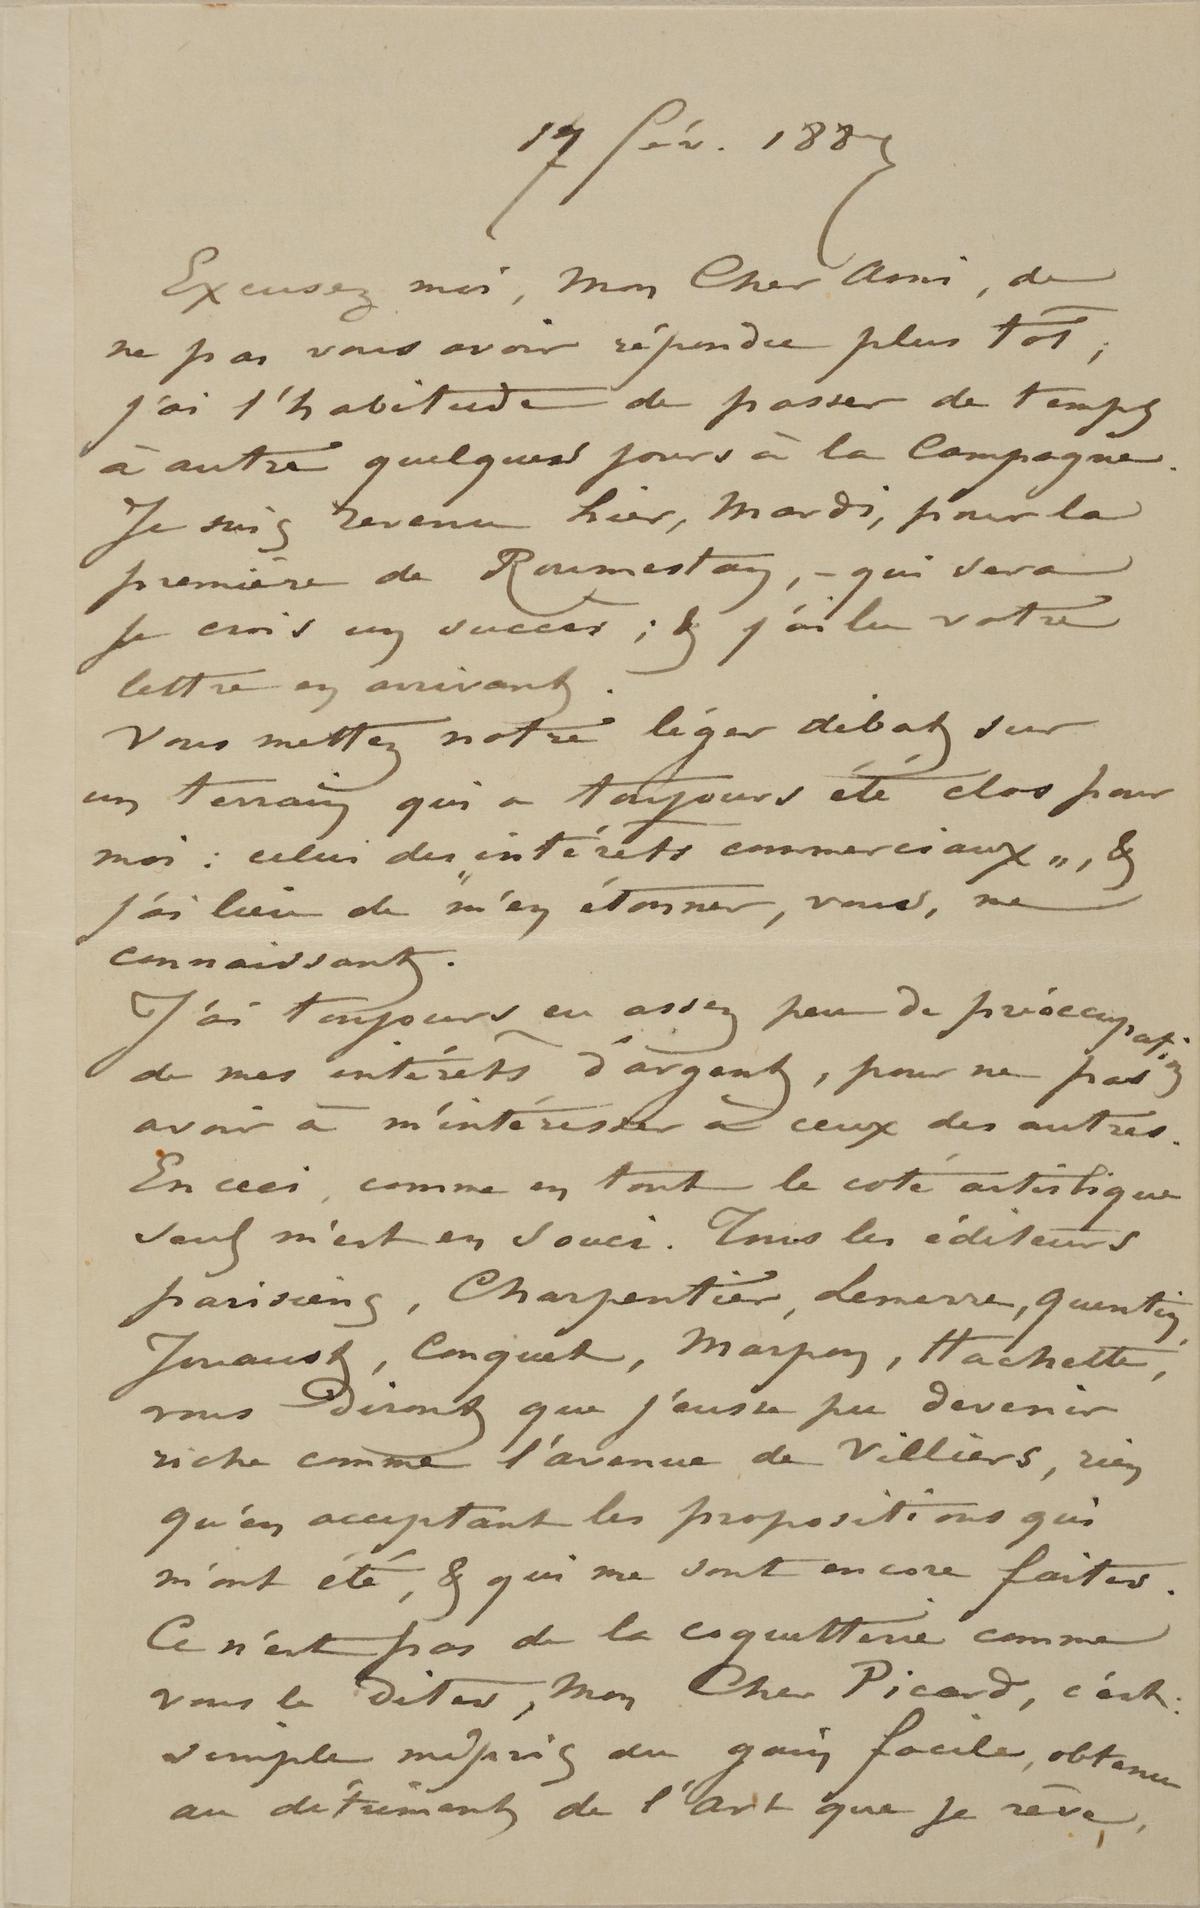 17 fév. 1887
Excusez moi, Mon Cher Ami, de
ne pas vous avoir répondu plus tôt ;
j'ai l'habitude de passer de temps
à autre quelques jours à la Campagne.
Je suis revenu hier, Mardi, pour la
première de Roumestan, – qui sera
je crois un succès ; & j'ai lu votre
lettre en arrivant.
Vous mettez notre léger débat sur
un terrain qui a toujours été clos pour
moi : celui des „intérêts commerciaux„, &
j'ai lieu de m'en étonner, vous, me
connaissant.
J'ai toujours eu assez peu de préoccupation
de mes intérêts d'argent, pour ne pas
avoir à m'intéresser à ceux des autres.
En ceci, comme en tout le coté artistique
seul m'est en souci. Tous les éditeurs
parisiens, Charpentier, Lemerre, Quentin,
Jouaust, Conquet, Marpon, Hachette,
vous diront que j'eusse pu devenir
riche comme l'avenue de Villiers, rien
qu'en acceptant les propositions qui
m'ont été, & qui me sont encore faites.
Ce n'est pas de la coquetterie comme
vous le dites, Mon Cher Picard, c'est :
simple mépris du gain facile, obtenu
au détriment de l'Art que je rêve,